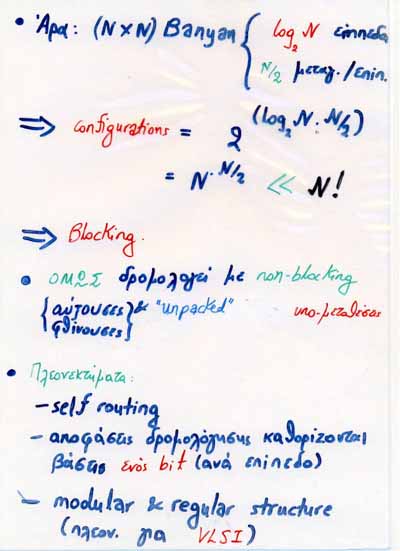 • Άρα: (N×N) Banyan { log₂N επίπεδα
N/2 μεταγ./επιπ.
⇒ configurations = 2^(log₂N · N/2)
= N^N/2 << N!
⇒ Blocking.
• ΟΜΩΣ δρομολογεί με non-blocking
{αύξουσες
φθίνουσες} & "unpacked" υπο-μεταθέσεις
• Πλεονεκτήματα:
- self routing
- αποφάσεις δρομολόγησης καθορίζονται
βάσει ενός bit (ανά επίπεδο)
- modular & regular structure
(πλεον. για VLSI)